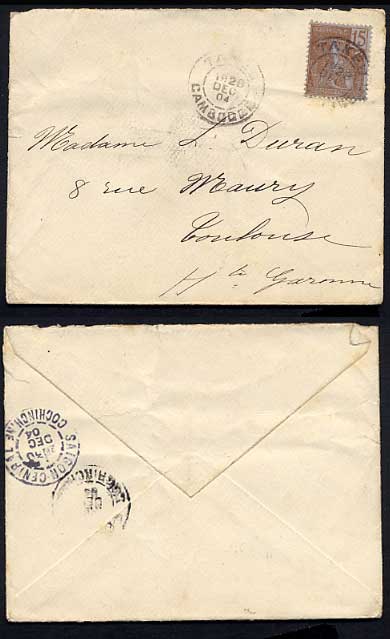 TAKEO
1828
DEC
04
CAMBODGE
15
TAKEO
Madame L. Duran
8 rue Maury
Toulouse
Hte Garonne
SAIGON CENTRAL
DEC
04
COCHINCHINE